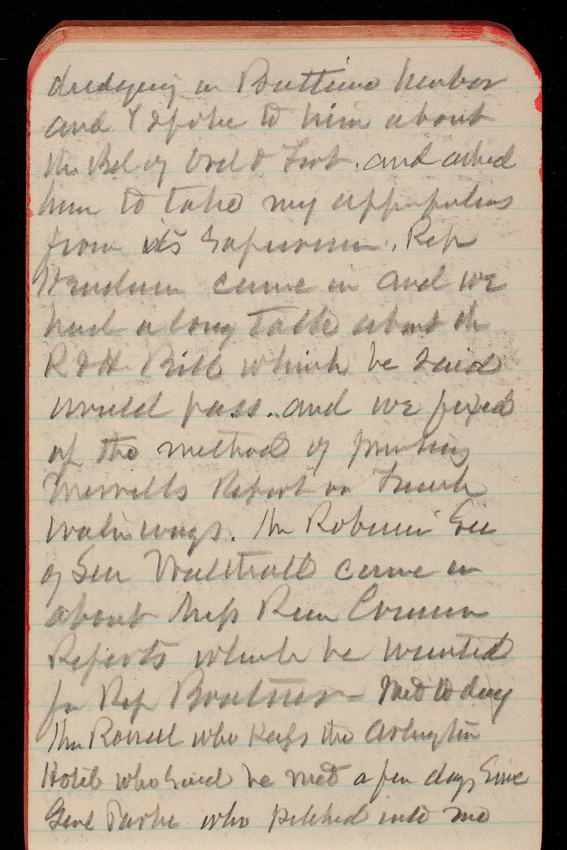 dredging in Baltimo harbor
and I spoke to him about
the Bd of Ord & Fort. and asked
him to take my appropriations
from its supervision. Rep
came in and we
had a long talk about the
R & H Bill which he said
would pass. and we fixed
up the method of printing
Merrills Report on French
water ways. Mr Robinson Sec
of Sen Walthall came in
about Miss River Commn
Reports which he wanted
for Rep Boatner - Met to day
Mr Roessel who keeps the Arlington
Hotel who said he met a few days since
Genl Parke who pitched into me